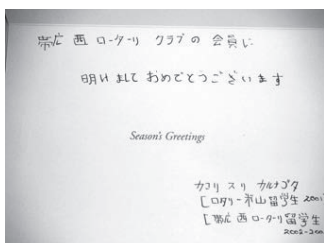 帯広 西 ロータリ クラブの 会員に
明け まして おめでとうございます
Season's Greetings
カオリ スリ カルナゴダ
[ロタリー 米山留学生 2001
[帯広 西 ロータリ 留学生
2002-200